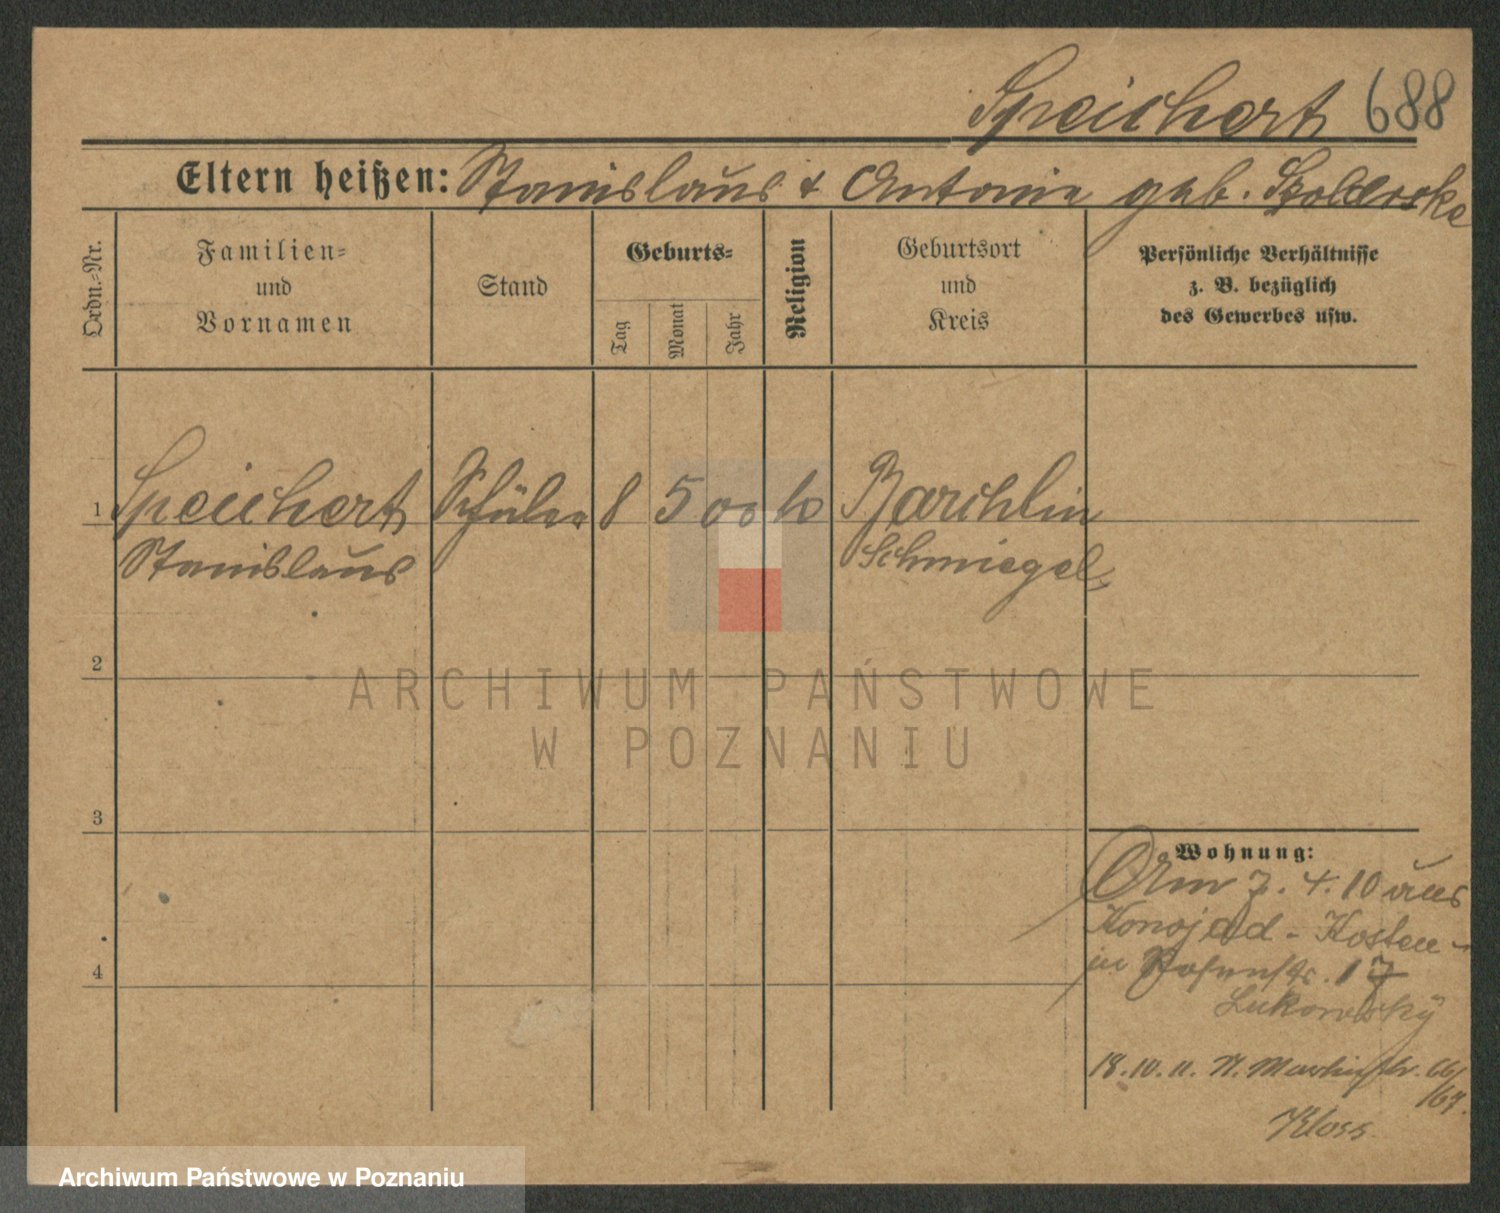 Speichert 688
Eltern heißen: Stanislaus & Antonie geb.
Ordn.=Nr.
Familien=
und
Vornamen
Stand
Geburts=
Tag
Monat
Jahr
Religion
Geburtsort
und
Kreis
Persönliche Verhältnisse
z. B. bezüglich
des Gewerbes usw.
1 Speichert Schüler 8 5 00 k Barchlin
Stanislaus Schmiegel
2
ARCHIWUM PAŃSTWOWE
W POZNANIU
3
Wohnung:
Am 7. 4. 10 aus
Konojad - Kosten
in Posenstr. 17
Lukowsky
18. 10. 11. St. Martinstr.
Kloss
4
Archiwum Państwowe w Poznaniu